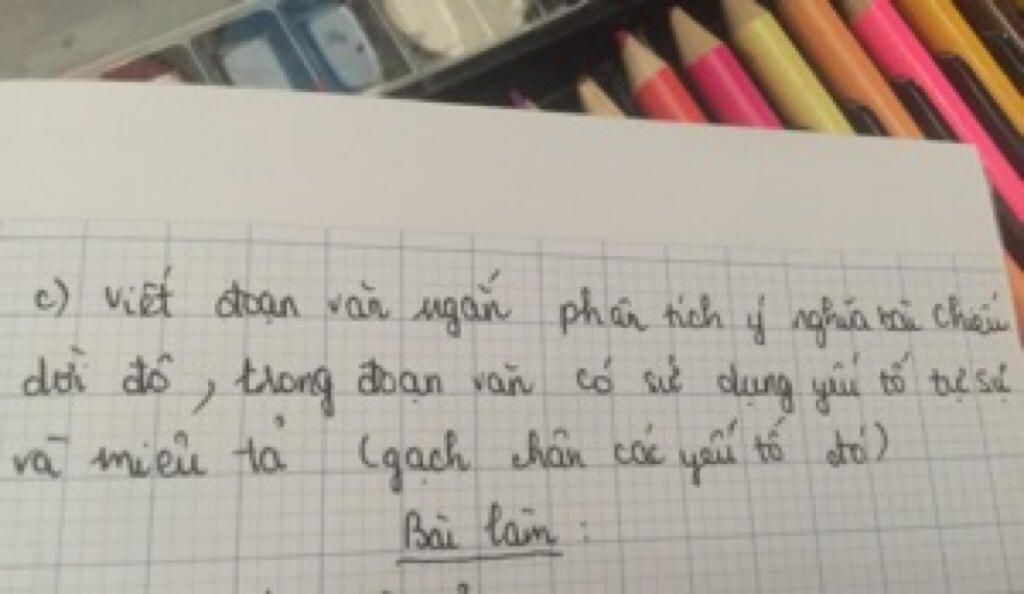 c) Viết đoạn văn ngắn phân tích ý nghĩa bài Chiếu
dời đô, trong đoạn văn có sử dụng yếu tố tự sự
và miêu tả (gạch chân các yếu tố đó)
Bài làm: